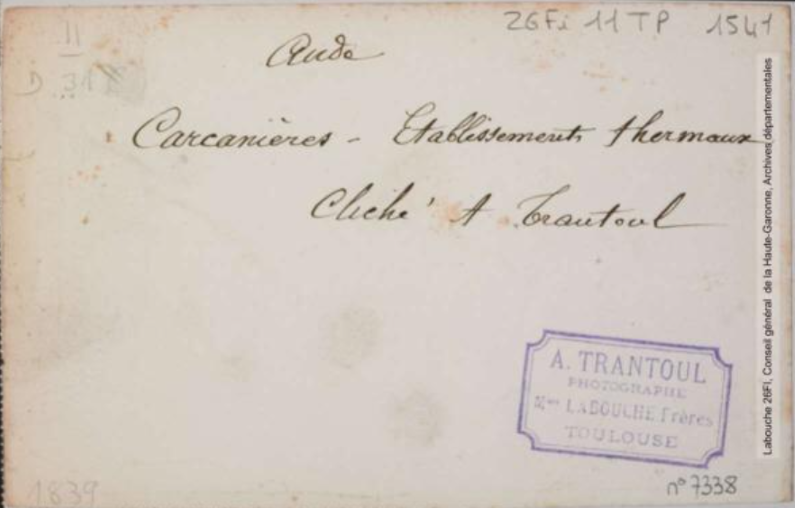 26Fi 11 TP 1541
II
D 31
Aude
Carcanières - Etablissements thermaux
Cliché A Trantoul
A. TRANTOUL
PHOTOGRAPHE
Mon LABOUCHE Frères
TOULOUSE
n° 7338
1839
Labouche 26FI, Conseil général de la Haute-Garonne, Archives départementales